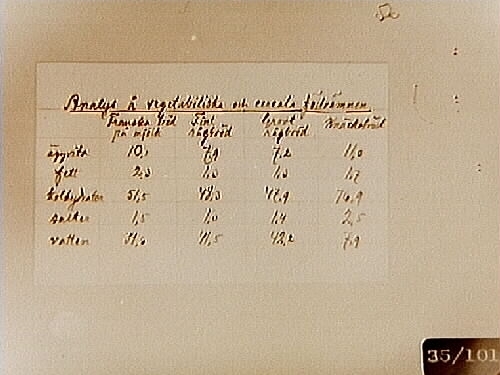 Analys å vegetabiliska och cereala födoämnen
Franska bröd Fint Grovt Knäckebröd
på mjölk rågbröd rågbröd
äggvita 10,1 7,9 7,2 11,0
fett 2,3 1,0 1,0 1,7
kolhydrater 51,5 48,3 47,9 76,9
salter 1,5 1,0 1,4 2,5
vatten 34,6 41,5 42,2 7,9
35/101